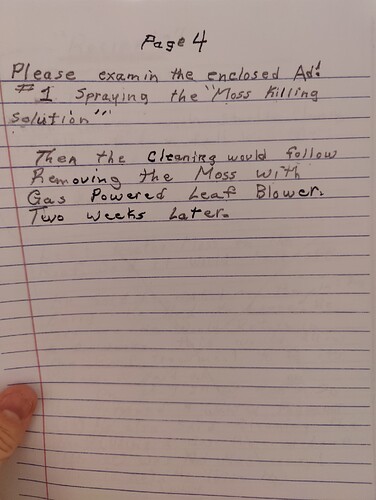 Page 4
Please examin the enclosed Ad!
#1 Spraying the "Moss Killing
solution"
Then the Cleaning would follow
Removing the Moss with
Gas Powered Leaf Blower.
Two weeks Later.